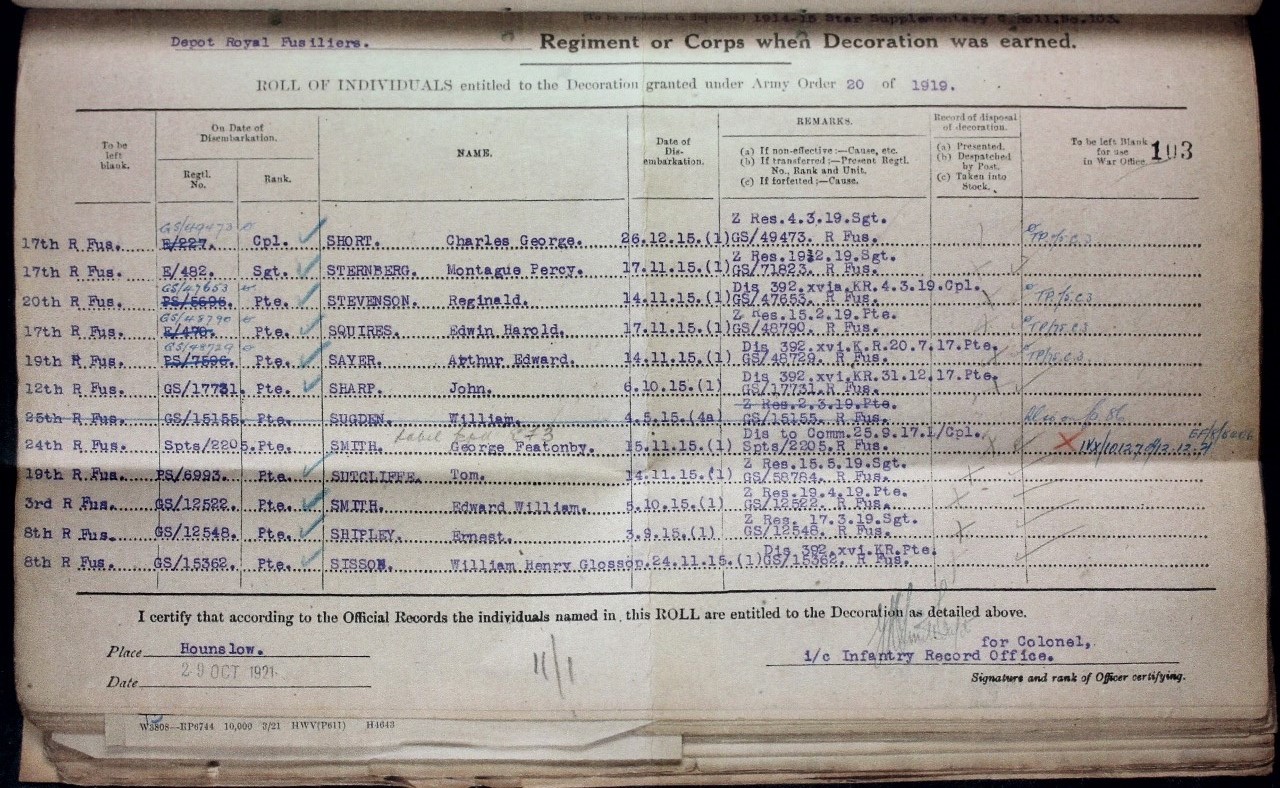 (To be rendered in duplicate) 1914-15 Star Supplementary C Roll.No.103.
Depot Royal Fusiliers. Regiment or Corps when Decoration was earned.
ROLL OF INDIVIDUALS entitled to the Decoration granted under Army Order 20 of 1919.
To be left blank.
On Date of Disembarkation.
Regtl. No.
Rank.
NAME.
Date of Dis-embarkation.
REMARKS.
(a) If non-effective :—Cause, etc.
(b) If transferred :—Present Regtl. No., Rank and Unit.
(c) If forfeited :—Cause.
Record of disposal of decoration.
(a) Presented.
(b) Despatched by Post.
(c) Taken into Stock.
To be left Blank for use in War Office.
103
GS/49473 Z Res.4.3.19.Sgt.
17th R Fus. E/227. Cpl. SHORT. Charles George. 26.12.15.(1) GS/49473. R Fus. TP/15.C.3
Z Res.1912.19.Sgt.
17th R Fus. E/482. Sgt. STERNBERG. Montague Percy. 17.11.15.(1) GS/71823. R Fus.
GS/47653 Dis 392.xvia.KR.4.3.19.Cpl.
20th R Fus. PS/5696. Pte. STEVENSON. Reginald. 14.11.15.(1) GS/47653. R Fus. TP/15.C.3
GS/48790 Z Res.15.2.19.Pte.
17th R Fus. E/470. Pte. SQUIRES. Edwin Harold. 17.11.15.(1) GS/48790. R Fus. TP/15.C.3
GS/48729 Dis 392.xvi.K.R.20.7.17.Pte.
19th R Fus. PS/7596. Pte. SAYER. Arthur Edward. 14.11.15.(1) GS/48729. R Fus. TP/15.C.3
Dis 392.xvi.KR.31.12.17.Pte.
12th R Fus. GS/17731. Pte. SHARP. John. 6.10.15.(1) GS/17731.R Fus.
Z Res.2.3.19.Pte.
25th R Fus. GS/15155. Pte. SUGDEN. William. 4.5.15.(4a) GS/15155. R Fus.
Dis to Comm.25.9.17.L/Cpl.
24th R Fus. Spts/2205. Pte. SMITH. George Featonby. 15.11.15.(1) Spts/2205. R Fus.
Z Res.15.5.19.Sgt.
19th R Fus. PS/6993. Pte. SUTCLIFFE. Tom. 14.11.15.(1) GS/58784. R Fus.
Z Res.19.4.19.Pte.
3rd R Fus. GS/12522. Pte. SMITH. Edward William. 5.10.15.(1) GS/12522. R Fus.
Z Res. 17.3.19.Sgt.
8th R Fus. GS/12548. Pte. SHIPLEY. Ernest. 3.9.15.(1) GS/12548. R Fus.
Dis 392.xvi.KR.Pte.
8th R Fus. GS/15362. Pte. SISSON. William Henry Glossop. 24.11.15.(1) GS/15362. R Fus.
I certify that according to the Official Records the individuals named in this ROLL are entitled to the Decoration as detailed above.
Place Hounslow. for Colonel,
i/c Infantry Record Office.
Date 29 OCT 1921
11/1
Signature and rank of Officer certifying.
W3808—RP6744 10,000 3/21 HWV(P611) H4643